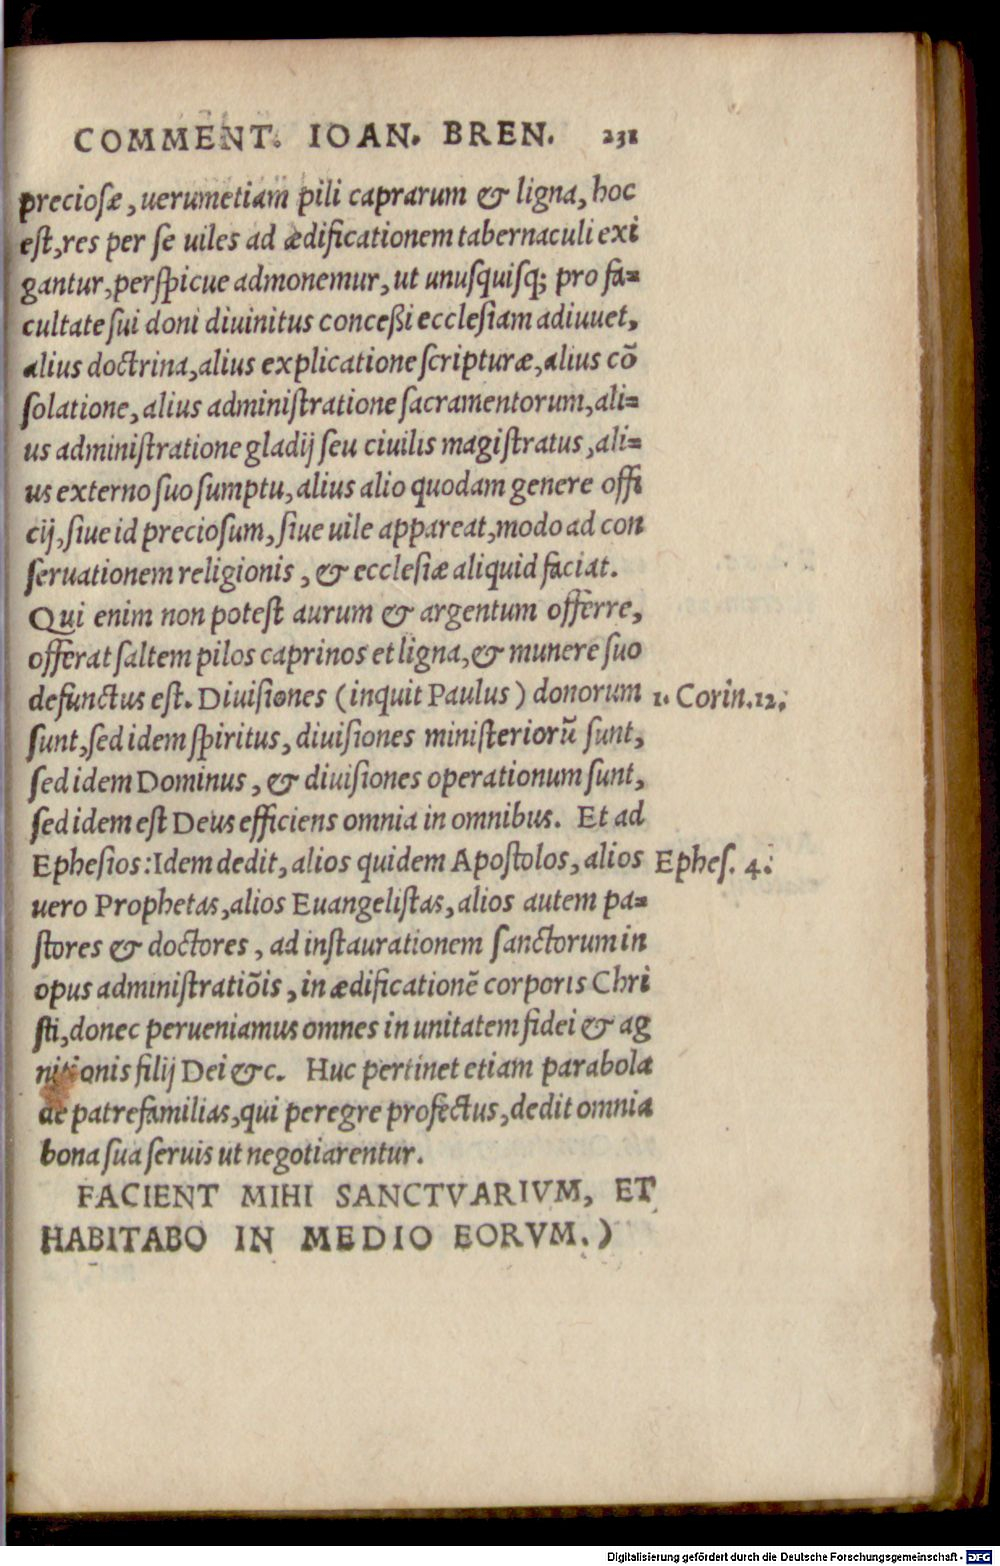 COMMENT. IOAN. BREN. 231
preciosæ, uerumetiam pili caprarum & ligna, hoc
est, res per se uiles ad ædificationem tabernaculi exi
gantur, perspicue admonemur, ut unusquisq; pro fa=
cultate sui doni diuinitus concessi ecclesiam adiuuet,
alius doctrina, alius explicatione scripturæ, alius cō
solatione, alius administratione sacramentorum, ali=
us administratione gladij seu ciuilis magistratus, ali=
us externo suo sumptu, alius alio quodam genere offi
cij, siue id preciosum, siue uile appareat, modo ad con
seruationem religionis, & ecclesiæ aliquid faciat.
Qui enim non potest aurum & argentum offerre,
offerat saltem pilos caprinos et ligna, & munere suo
defunctus est. Diuisiones (inquit Paulus) donorum
1. Corin. 12.
sunt, sed idem spiritus, diuisiones ministeriorū sunt,
sed idem Dominus, & diuisiones operationum sunt,
sed idem est Deus efficiens omnia in omnibus. Et ad
Ephesios: Idem dedit, alios quidem Apostolos, alios
Ephes. 4.
uero Prophetas, alios Euangelistas, alios autem pa=
stores & doctores, ad instaurationem sanctorum in
opus administratiōis, in ædificationē corporis Chri
sti, donec perueniamus omnes in unitatem fidei & ag
nitionis filij Dei &c. Huc pertinet etiam parabola
de patrefamilias, qui peregre profectus, dedit omnia
bona sua seruis ut negotiarentur.
FACIENT MIHI SANCTVARIVM, ET
HABITABO IN MEDIO EORVM.)
Digitalisierung gefördert durch die Deutsche Forschungsgemeinschaft - DFG